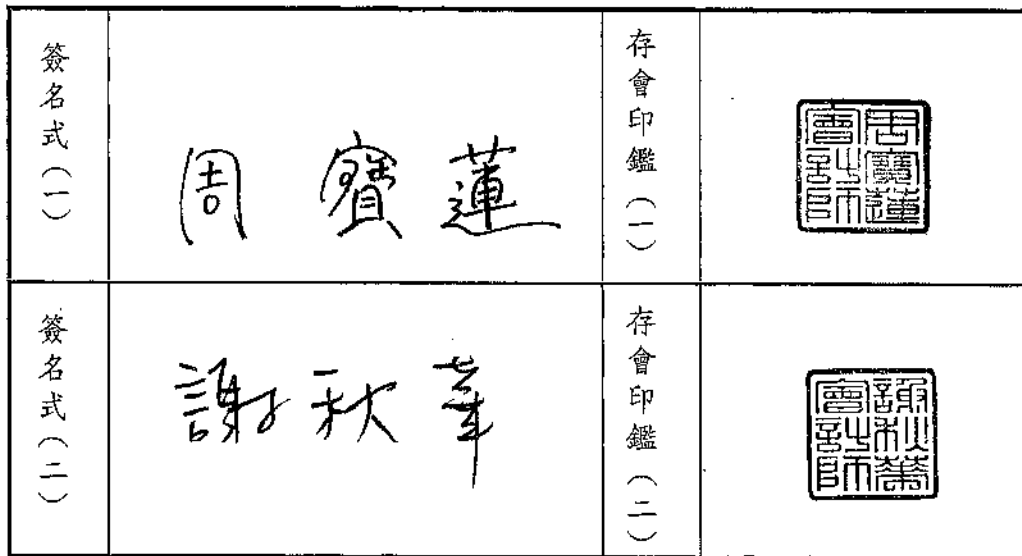 簽名式（一）
周寶蓮
存會印鑑（一）
周寶蓮會計師
簽名式（二）
謝秋華
存會印鑑（二）
謝秋華會計師